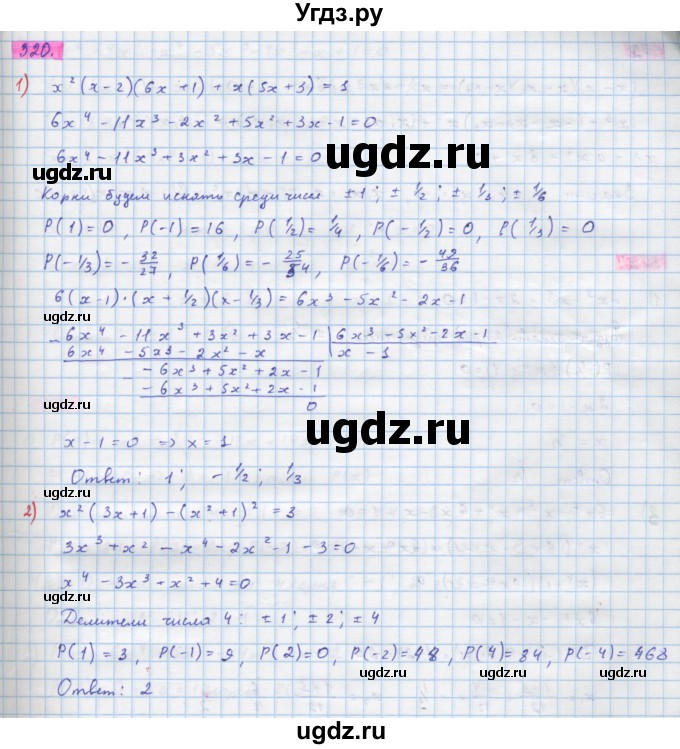 Угдз.ру
320.
1) x²(x-2)(6x+1) + x(5x+3) = 1
6x⁴ - 11x³ - 2x² + 5x² + 3x - 1 = 0
6x⁴ - 11x³ + 3x² + 3x - 1 = 0
ugdz.ru ugdz.ru ugdz.ru
Корни будем искать среди чисел ±1; ± 1/2; ± 1/3; ± 1/6
P(1) = 0, P(-1) = 16, P(1/2) = 1/4, P(-1/2) = 0, P(1/3) = 0
P(-1/3) = - 32/27, P(1/6) = - 25/54, P(-1/6) = - 49/36
6(x-1)·(x+1/2)(x-1/3) = 6x³ - 5x² - 2x - 1
ugdz.ru
- 6x⁴ - 11x³ + 3x² + 3x - 1 | 6x³ - 5x² - 2x - 1
6x⁴ - 5x³ - 2x² - x | x - 1
- - 6x³ + 5x² + 2x - 1
- 6x³ + 5x² + 2x - 1
ugdz.ru
0
ugdz.ru
x - 1 = 0 => x = 1
ugdz.ru
Ответ: 1; - 1/2; 1/3
2) x²(3x+1) - (x²+1)² = 3
ugdz.ru
3x³ + x² - x⁴ - 2x² - 1 - 3 = 0
x⁴ - 3x³ + x² + 4 = 0
ugdz.ru
Делители числа 4: ±1; ±2; ±4
ugdz.ru
P(1) = 3, P(-1) = 9, P(2) = 0, P(-2) = 48, P(4) = 84, P(-4) = 468
Ответ: 2
ugdz.ru ugdz.ru